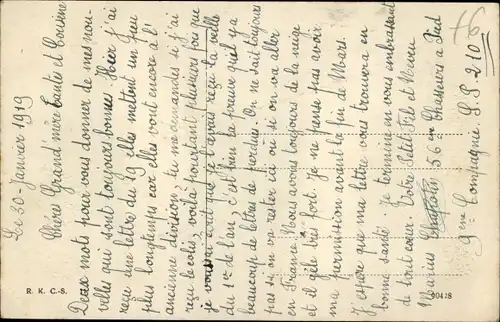 Le 30 Janvier 1919
Chères Grand'mère tante et Cousine
Deux mots pour vous donner de mes nou-
velles qui sont toujours bonnes. Hier j'ai
reçu une lettre du 19 elles mettent un peu
plus longtemps car elles vont encore à l'
ancienne division; tu me demandes si j'ai
reçu le colis; voilà pourtant plusieurs fois que
je vous ai écrit que je l'avais reçu la veille
du 1er de l'an; c'est bien la preuve qu'il y a
beaucoup de lettres de perdues. On ne sait toujours
pas si on va rester ici ou si on va aller
en France. Nous avons toujours de la neige
et il gèle très fort. Je ne pense pas avoir
ma permission avant la fin de Mars.
J'espère que ma lettre vous trouvera en
bonne santé. je termine en vous embrassant
de tout coeur. Votre Petit-Fils et Neveu
Marius 56ème Chasseurs à Pied
9me Compagnie S.P. 210
76
R. K. C.-S.
90428